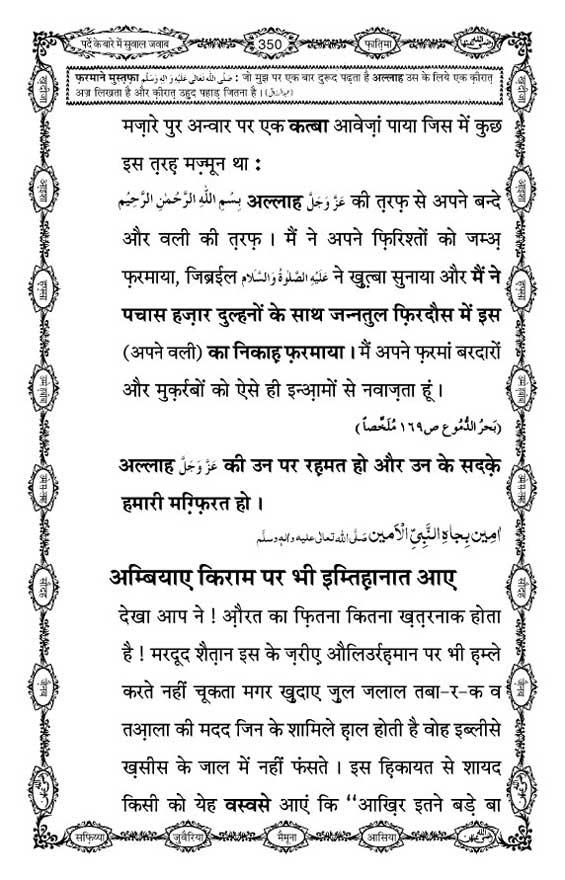 पर्दे के बारे में सुवाल जवाब 350 फ़ातिमा
फ़रमाने मुस्तफ़ा صَلَّى اللهُ تَعَالٰى عَلَيْهِ وَاٰلِهٖ وَسَلَّم : जो मुझ पर एक बार दुरूद पढ़ता है अल्लाह उस के लिये एक क़ीरात़
अज्र लिखता है और क़ीरात़ उहुद पहाड़ जितना है ।
मज़ारे पुर अन्वार पर एक कत्बा आवेज़ां पाया जिस में कुछ
इस त़रह़ मज़्मून था :
بِسْمِ اللّٰهِ الرَّحْمٰنِ الرَّحِيْم अल्लाह عَزَّ وَجَلَّ की त़रफ़ से अपने बन्दे
और वली की त़रफ़ । मैं ने अपने फ़िरिश्तों को जम्अ़
फ़रमाया, जिब्रईल عَلَيْهِ الصَّلٰوةُ وَالسَّلَام ने खुत़्बा सुनाया और मैं ने
पचास हज़ार दुल्हनों के साथ जन्नतुल फ़िरदौस में इस
(अपने वली) का निकाह़ फ़रमाया । मैं अपने फ़रमां बरदारों
और मुक़र्रबों को ऐसे ही इन्आ़मों से नवाज़ता हूं ।
(بَحرُ الدُّمُوع ص۱٦۹ مُلَخَّصاً)
अल्लाह عَزَّ وَجَلَّ की उन पर रह़मत हो और उन के सदक़े
हमारी मग़्फ़िरत हो ।
اٰمِين بِجَاهِ النَّبِيِّ الْاَمين صَلَّى الله تعالى عليه واٰلهٖ وسلَّم
अम्बियाए किराम पर भी इम्तिह़ानात आए
देखा आप ने ! औ़रत का फ़ितना कितना ख़त़रनाक होता
है ! मरदूद शैत़ान इस के ज़रीए औलिउर्रह़मान पर भी ह़म्ले
करते नहीं चूकता मगर खुदाए जुल जलाल तबा-र-क व
तआ़ला की मदद जिन के शामिले ह़ाल होती है वोह इब्लीसे
ख़सीस के जाल में नहीं फंसते । इस ह़िकायत से शायद
किसी को येह वस्वसे आएं कि “आख़िर इतने बड़े बा
सफ़िय्या जुवैरिया मैमूना आसिया